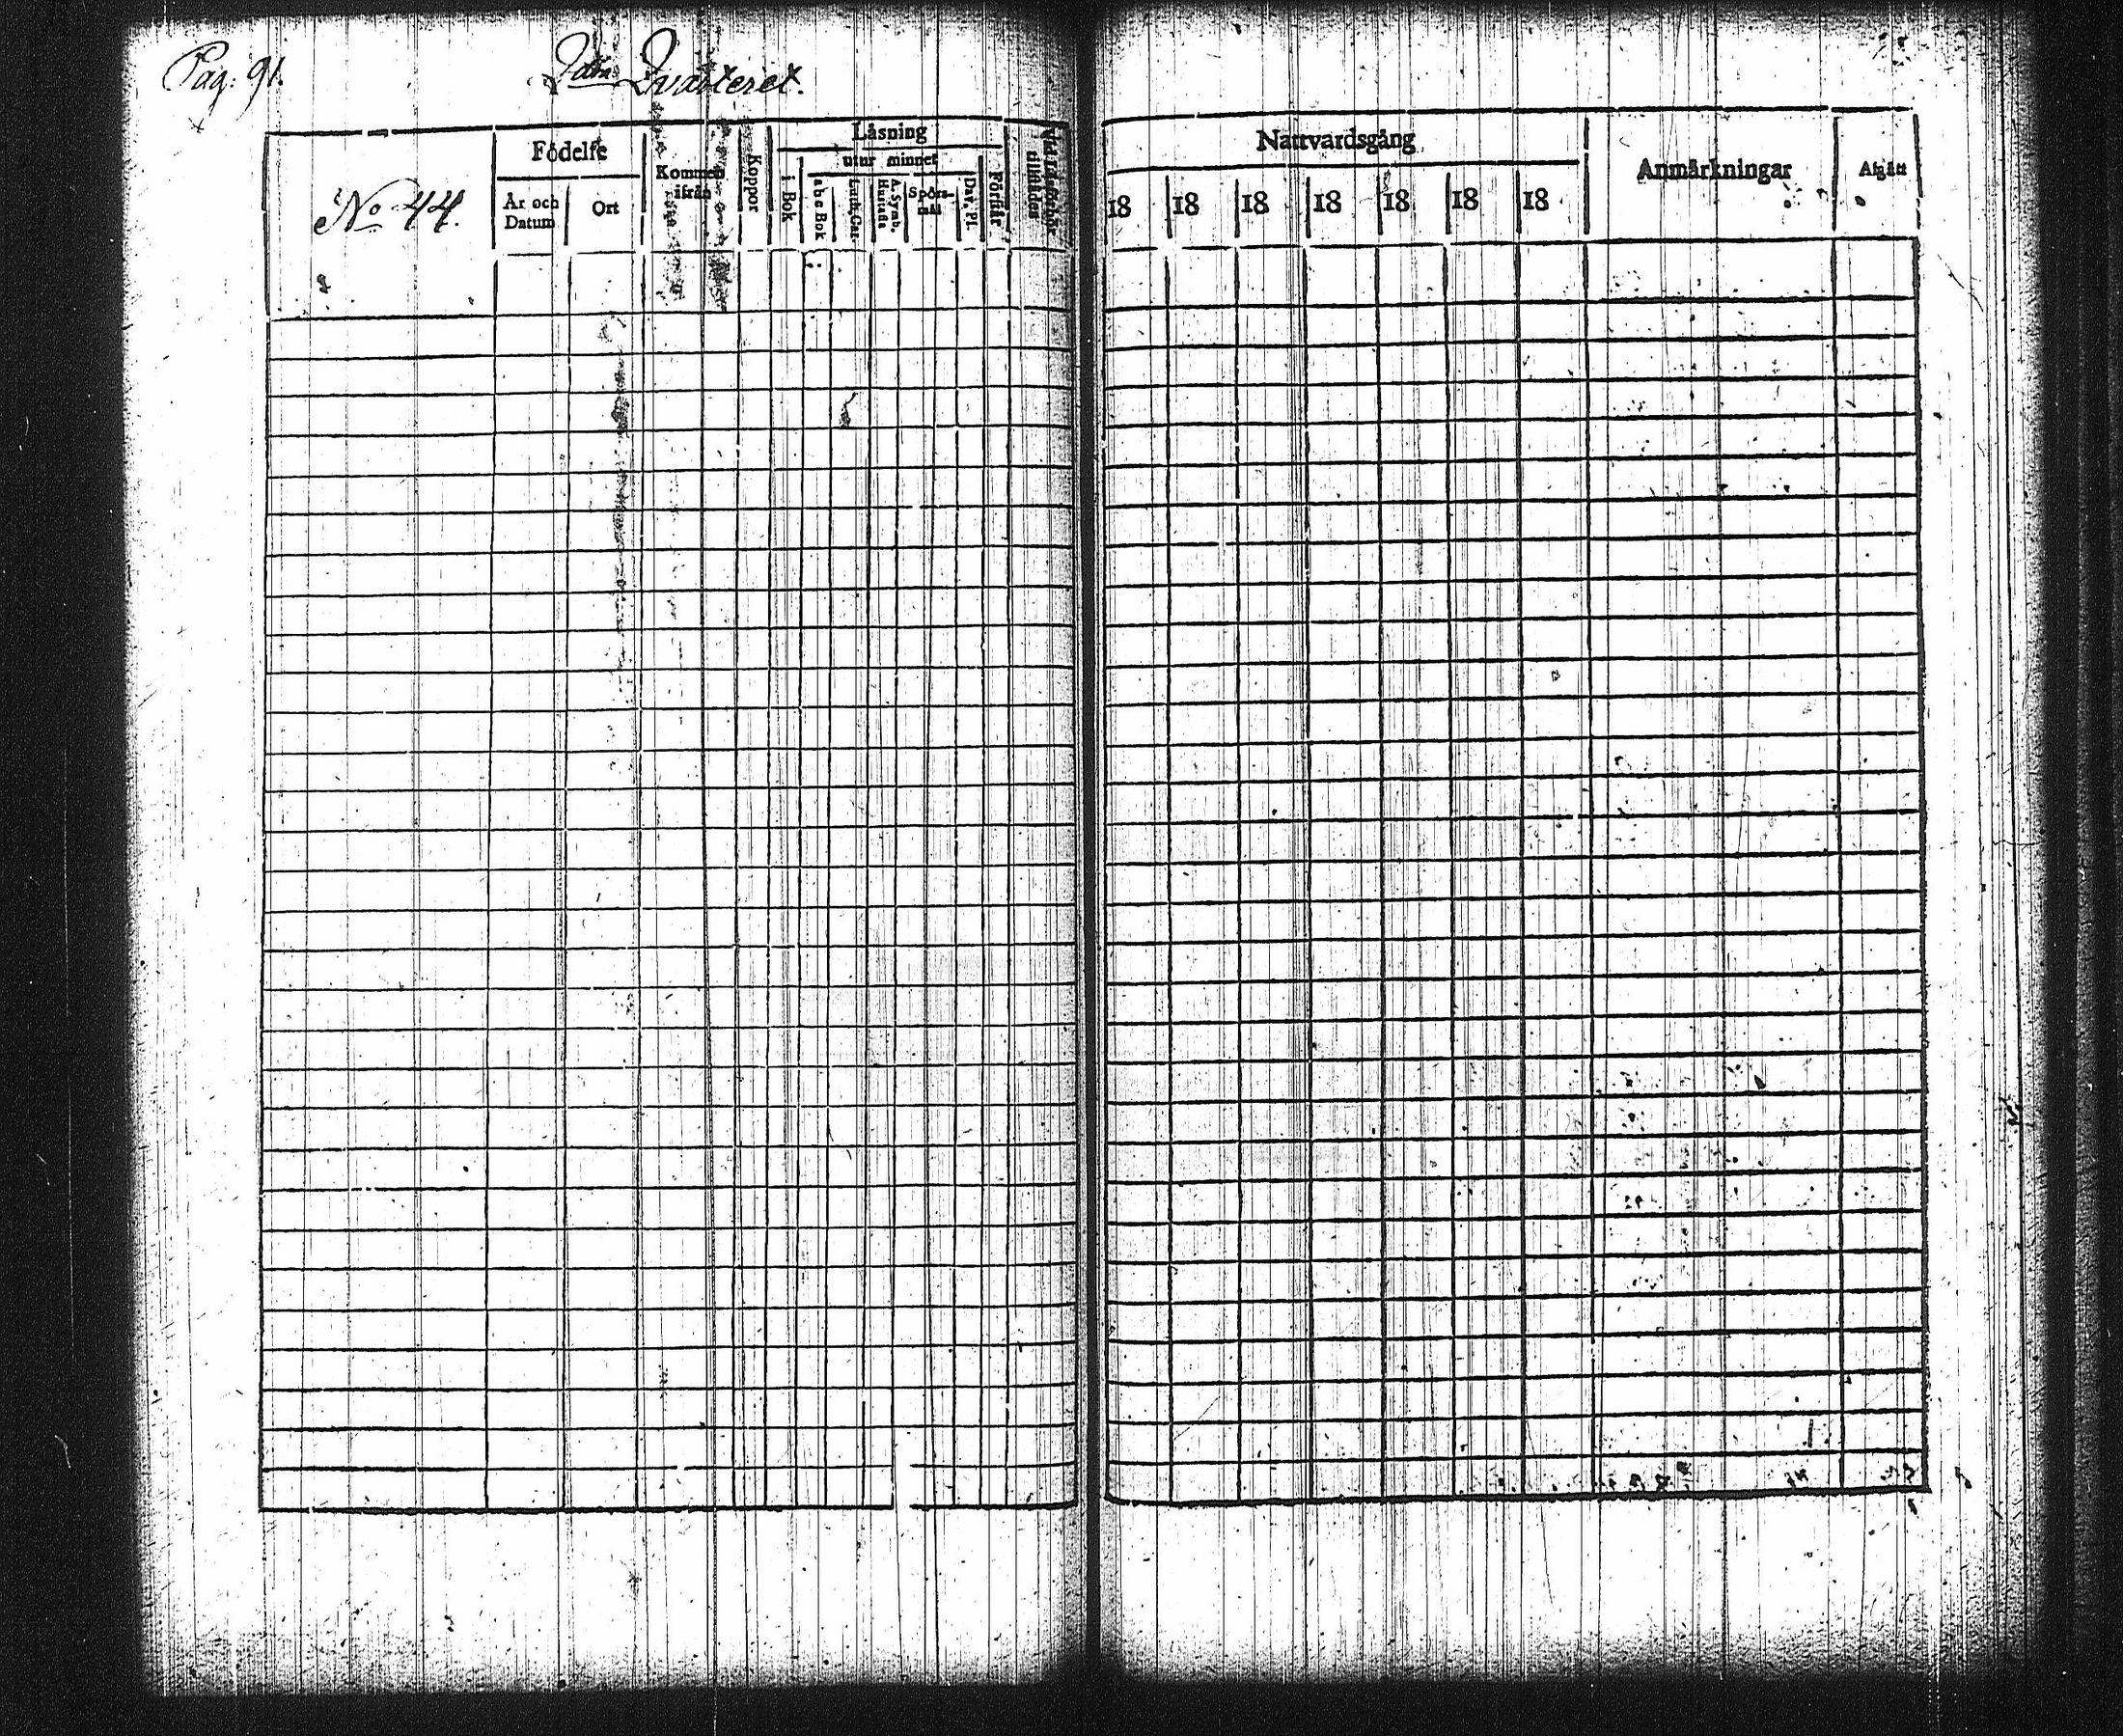 Pag: 91.
2dra Qvarteret.
No 44.
Födelse
År och Datum
Ort
Kommen ifrån
Koppor
Läsning
i Bok
utur minnet
abc Bok
Luth. Cat.
A. Symb. Hustafla
Spörsmål
Dav. Ps.
Förstår
Nattvardsgång
18 18 18 18 18 18 18
Anmärkningar
Afgått